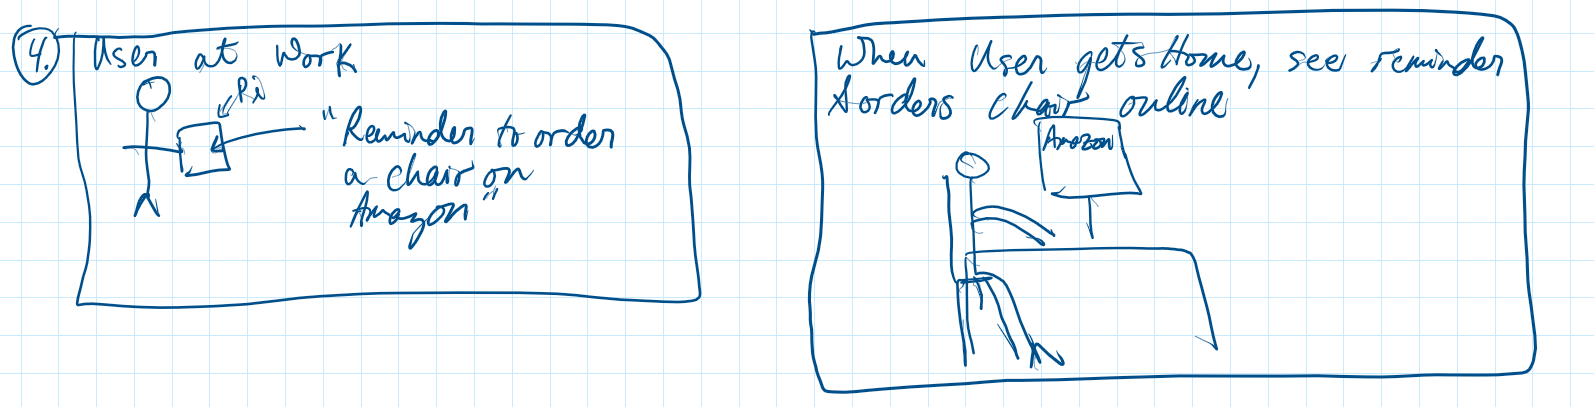 4.
User at Work
Pi
"Reminder to order
a chair on
Amazon"
When User gets Home, see reminder
& orders chair online
Amazon